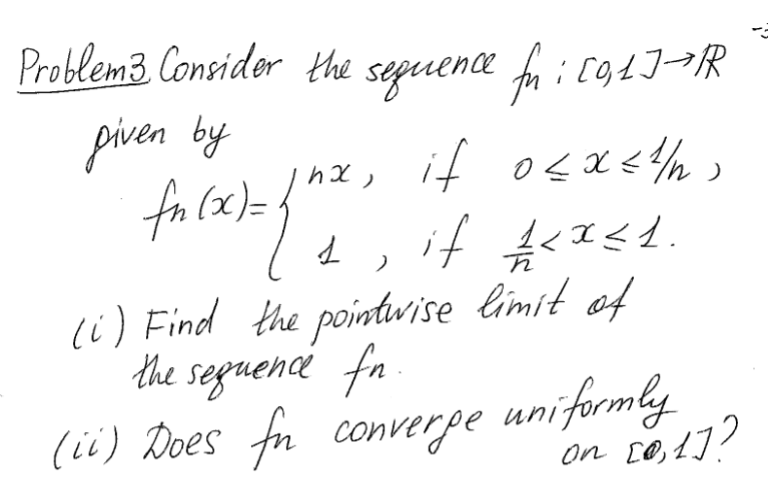 Problem 3. Consider the sequence fn : [0,1]→ℝ
given by
fn(x)= { nx, if 0 ≤ x ≤ 1/n,
1, if 1/n < x ≤ 1.
(i) Find the pointwise limit of
the sequence fn.
(ii) Does fn converge uniformly
on [0,1]?